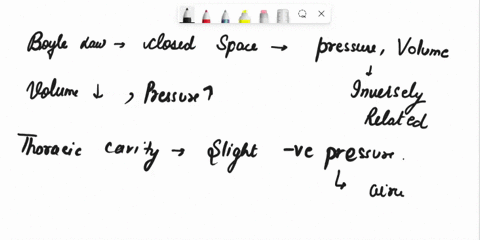 Boyle Law → closed Space → pressure, Volume
↓
Volume ↓ , Pressure ↑ Inversely
Related
Thoracic cavity → Slight -ve pressure.
↳